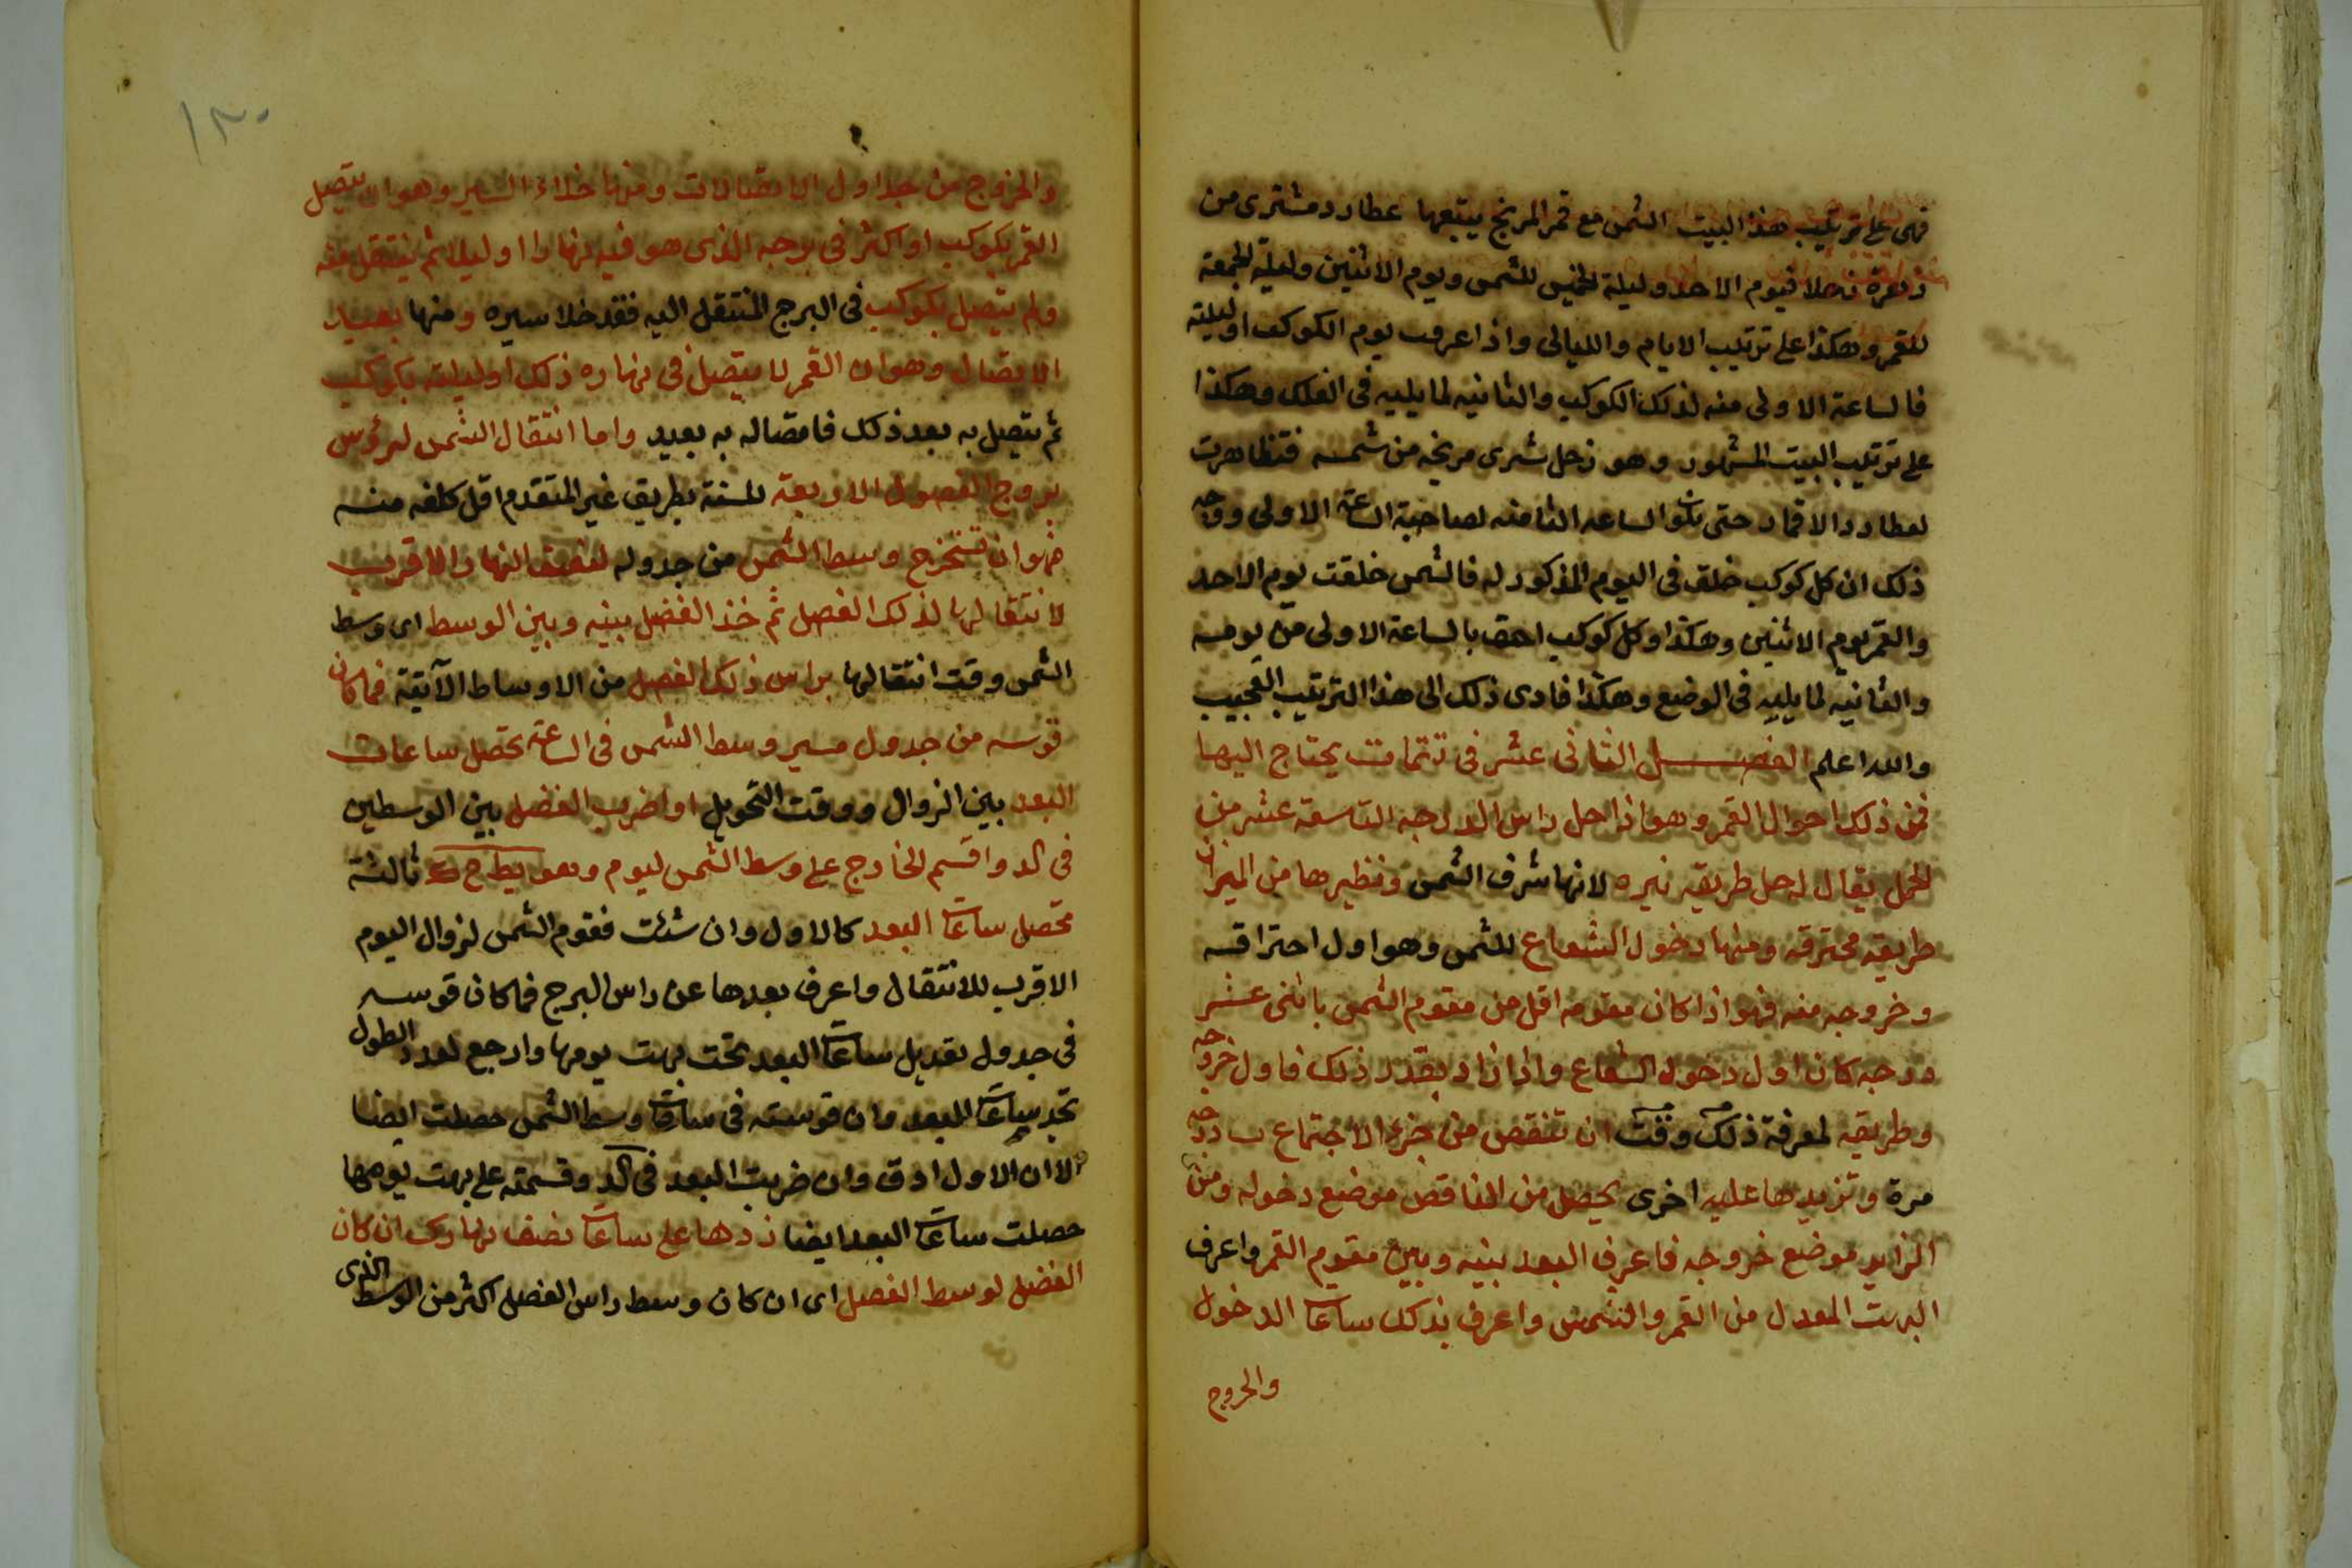 فهى على ترتيب هذا البيت الشمس مع قمر المريخ يتبعها عطارد ومشترى من
زهرة زحلا فيوم الاحد وليلة الخميس للشمس ويوم الاثنين وليلة الجمعة
للقمر وهكذا على ترتيب الايام والليالى واذا عرفت يوم الكوكب او ليلته
فالساعة الاولى منه لذلك الكوكب والثانيه لما يليه فى الفلك وهكذا
على ترتيب البيت المشهور وهو زحل شرى مريخه من شمسه فتظاهرت
لعطارد الاقمار حتى تكون الساعه الثامنه لصاحبة الساعة الاولى ووجه
ذلك ان كل كوكب خلق فى اليوم المذكور له فالشمس خلقت يوم الاحد
والقمر يوم الاثنين وهكذا وكل كوكب احق بالساعة الاولى من يومه
والثانيه لما يليه فى الوضع وهكذا فادى ذلك الى هذا الترتيب العجيب
والله اعلم الفصل الثانى عشر فى تتمات يحتاج اليها
فمن ذلك احوال القمر وهو اذا حل راس الدرجه التاسعة عشر من
الحمل يقال له حل طريقه نيره لانها شرف الشمس ونظيرها من الميزان
طريقه محترقه ومنها دخول الشعاع للشمس وهو اول احتراقه
وخروجه منه فهو اذا كان مقومه اقل من مقوم الشمس باثنى عشر
درجه كان اول دخول الشعاع واذا زاد بقدر ذلك فاول خروجه
وطريقه لمعرفة ذلك وقت ان تنقص من جزء الاجتماع يب درجه
مرة وتزيدها عليه اخرى يحصل من الناقص موضع دخوله ومن
الزايد موضع خروجه فاعرف البعد بينه وبين مقوم القمر واعرف
البهت المعدل من القمر والشمس واعرف بذلك ساعات الدخول
والخروج
١٣٠
والخروج من جداول الاتصالات ومنها خلاء السير وهو ان يتصل
القمر بكوكب او اكثر فى برجه الذى هو فيه نهارا او ليلا ثم ينتقل منه
ولم يتصل بكوكب فى البرج المنتقل اليه فقد خلا سيره ومنها بعيد
الاتصال وهو ان القمر لا يتصل فى نهاره ذلك او ليلته بكوكب
ثم يتصل به بعد ذلك فاتصاله به بعيد واما انتقال الشمس لرؤس
بروج الفصول الاربعة للسنة بطريق غير المتقدم اقل كلفه منه
فهو ان تستخرج وسط الشمس من جدوله لنصف النهار الاقرب
لانتقالها لذلك الفصل ثم خذ الفضل بينه وبين الوسط اى وسط
الشمس وقت انتقالها براس ذلك الفصل من الاوساط الآتية فما كان
قوسه من جدول مسير وسط الشمس فى الساعة تحصل ساعات
البعد بين الزوال ووقت التحويل او اضرب الفضل بين الوسطين
فى كد واقسم الخارج على وسط الشمس ليوم وهو نط ح ك ثالثة
تحصل ساعات البعد كالاول وان شئت فقوم الشمس لزوال اليوم
الاقرب للانتقال واعرف بعدها عن راس البرج فما كان قوسه
فى جدول تعديل ساعات البعد تحت بهت يومها وارجع لعدد الطول
تجد ساعات البعد وان قوسته فى ساعات وسط الشمس حصلت ايضا
الا ان الاول ادق وان ضربت البعد فى كد وقسمته على بهت يومها
حصلت ساعات البعد ايضا زدها على ساعات نصف نهارك ان كان
الفضل لوسط الفصل اى ان كان وسط راس الفصل اكثر من الوسط الذى